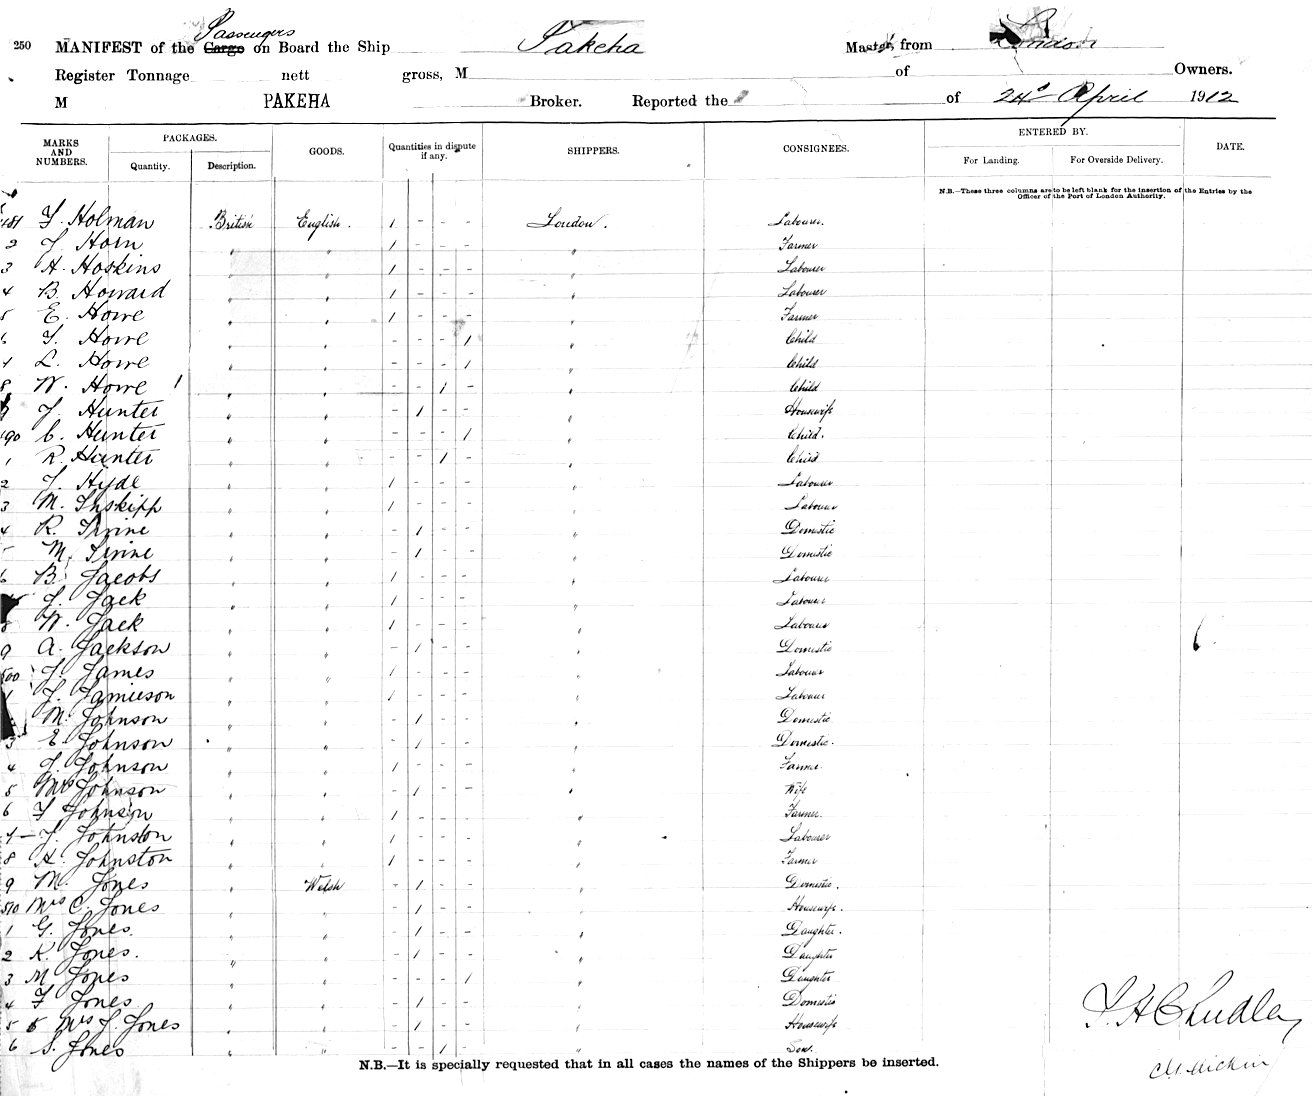 Passengers
250 MANIFEST of the Cargo on Board the Ship Pakeha Master, from London
Register Tonnage nett gross, M of Owners.
M PAKEHA Broker. Reported the of 24th April 1912
MARKS AND NUMBERS. PACKAGES. Quantity. Description. GOODS. Quantities in dispute if any. SHIPPERS. CONSIGNEES. ENTERED BY. For Landing. For Overside Delivery. DATE.
N.B.—These three columns are to be left blank for the insertion of the Entries by the
Officer of the Port of London Authority.
481 F. Holman British English. 1 - - - London. Labourer.
2 J. Horn " " 1 - - - " Farmer
3 A. Hoskins " " 1 - - - " Labourer
4 B. Howard " " 1 - - - " Labourer
5 E. Howe " " 1 - - - " Farmer
6 J. Howe " " - - - 1 " Child
7 L. Howe " " - - - 1 " Child
8 W. Howe " " - - 1 - " Child
9 J. Hunter " " - 1 - - " Housewife
490 C. Hunter " " - - - 1 " Child.
1 R. Hunter " " - - 1 - " Child
2 J. Hyde " " 1 - - - " Labourer
3 M. Inskipp " " 1 - - - " Labourer
4 R. Irvine " " - 1 - - " Domestic
M. Irvine " " - 1 - - " Domestic
6 B. Jacobs " " 1 - - - " Labourer
J. Jack " " 1 - - - " Labourer
8 W. Jack " " 1 - - - " Labourer
9 A. Jackson " " - 1 - - " Domestic
500 J. James " " 1 - - - " Labourer
1 J. Jamieson " " 1 - - - " Labourer
M. Johnson " " - 1 - - " Domestic
3 E. Johnson " " - 1 - - " Domestic.
4 J. Johnson " " 1 - - - " Farmer.
5 Mrs Johnson " " - 1 - - " Wife
6 F Johnson " " 1 - - - " Farmer.
7 J. Johnston " " 1 - - - " Labourer
8 A. Johnston " " 1 - - - " Farmer
9 M. Jones " Welsh - 1 - - " Domestic.
510 Mrs C. Jones " " - 1 - - " Housewife.
1 G. Jones. " " - 1 - - " Daughter.
2 K. Jones. " " - 1 - - " Daughter
3 M Jones " " - - - 1 " Daughter
4 F Jones. " " - 1 - - " Domestic
5 Mrs J. Jones " " - 1 - - " Housewife
6 S. Jones " " - - 1 - " Son.
N.B.—It is specially requested that in all cases the names of the Shippers be inserted.